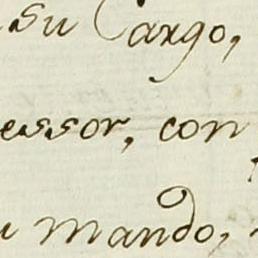 su Cargo,
essor, con
u mando,